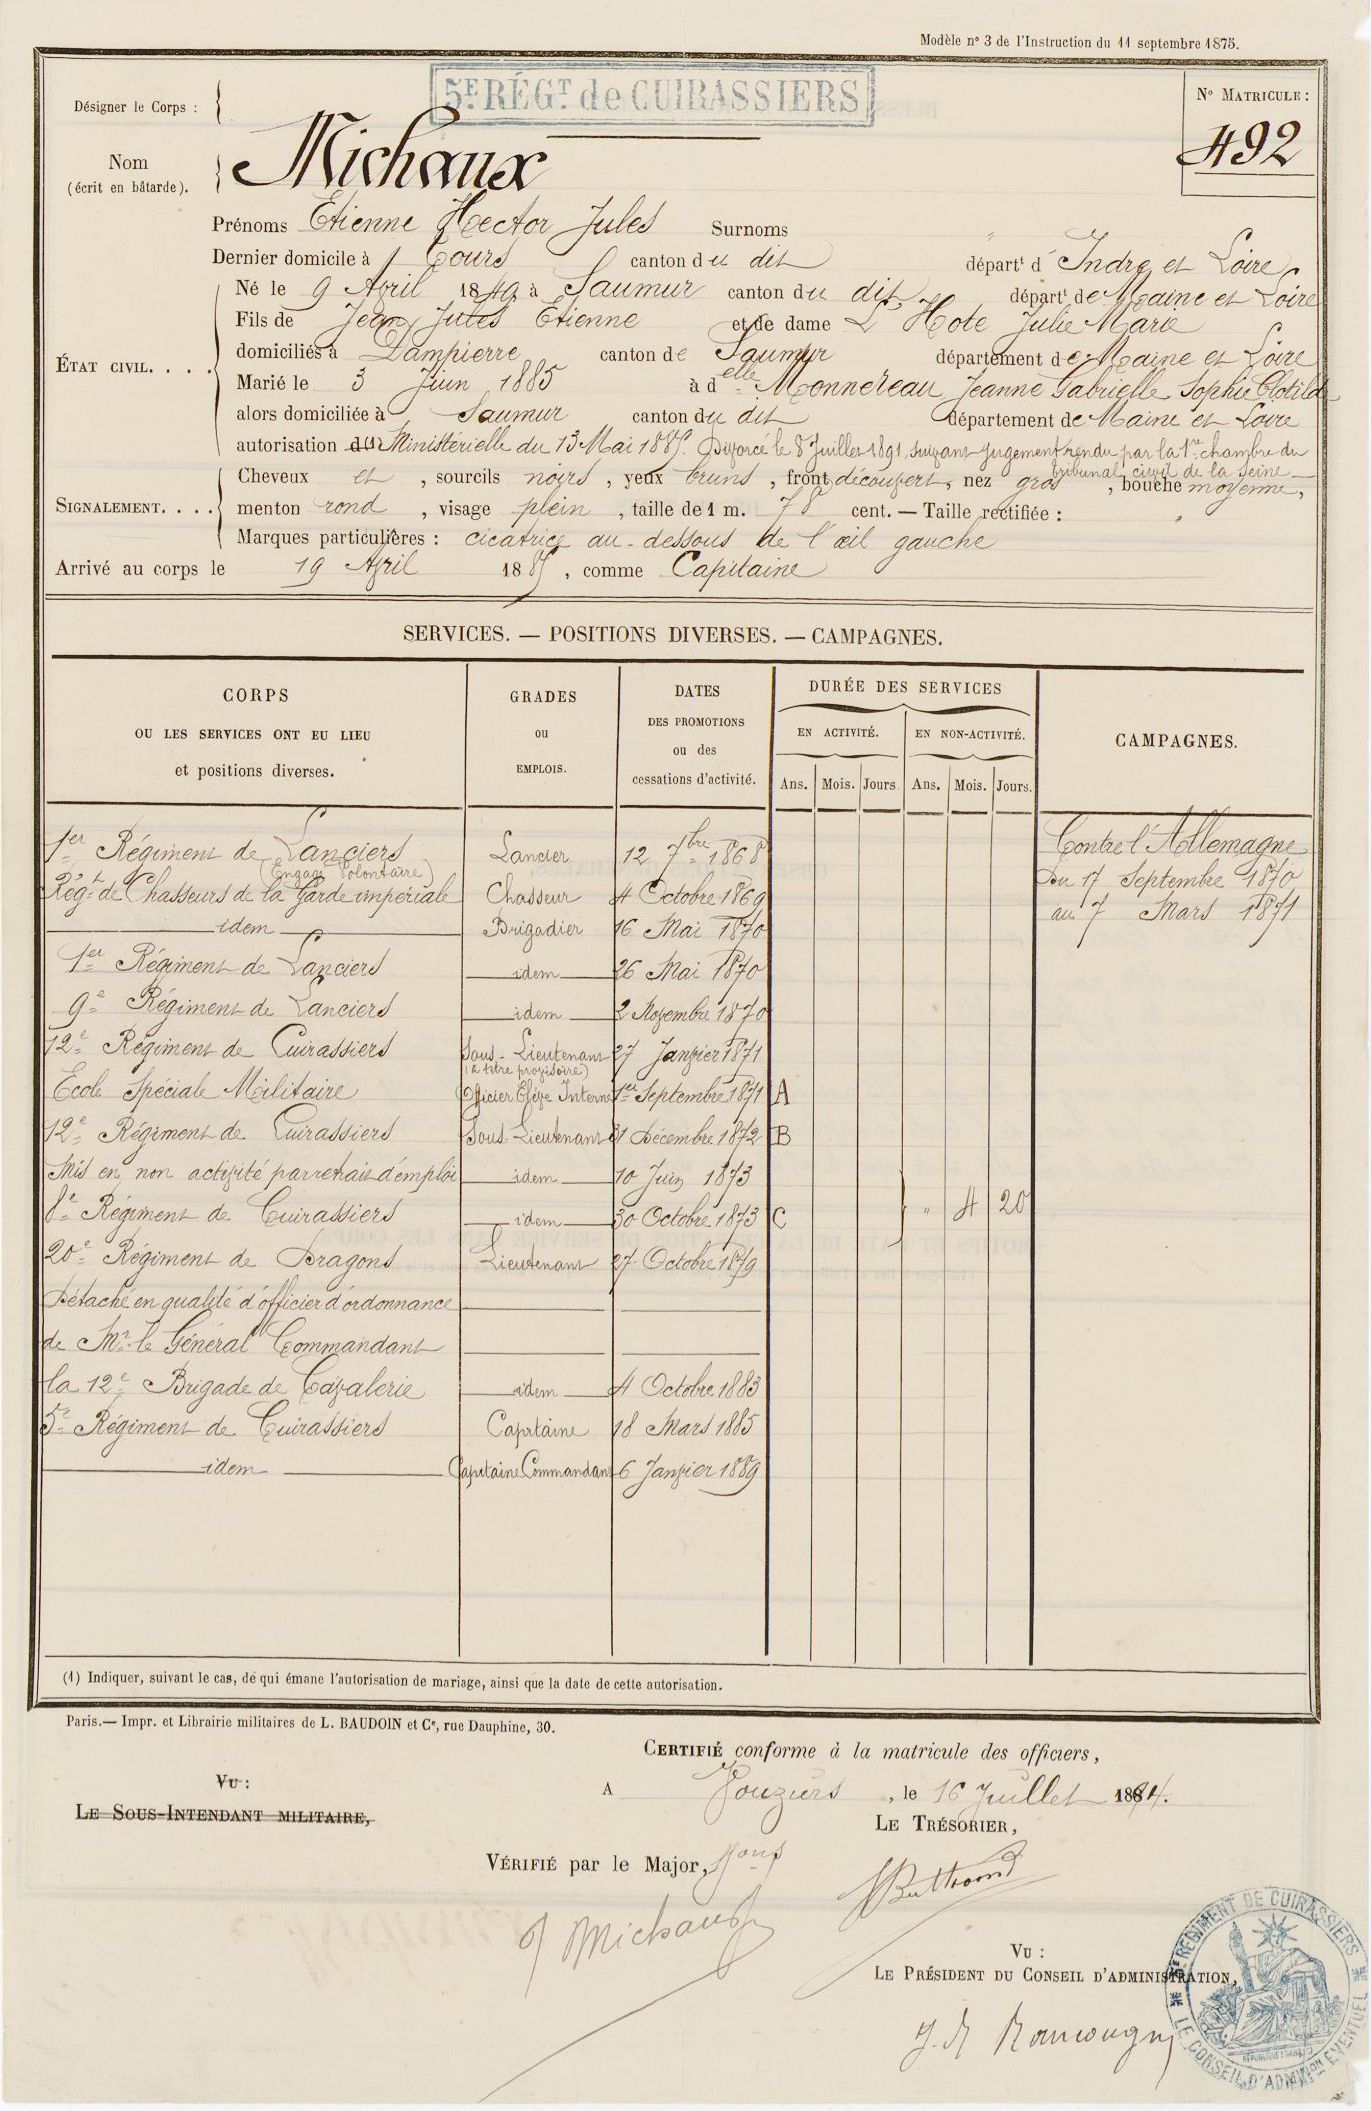 Modèle n° 3 de l'Instruction du 11 septembre 1875.
5E RÉGT de CUIRASSIERS
Désigner le Corps :
N° MATRICULE :
492
Nom
(écrit en bâtarde).
Michaux
Prénoms Etienne Hector Jules Surnoms "
Dernier domicile à Tours canton du dit départt d'Indre et Loire
Né le 9 Avril 1849 à Saumur canton du dit départt de Maine et Loire
Fils de Jean Jules Etienne et de dame L'Hote Julie Marie
domiciliés à Dampierre canton de Saumur département de Maine et Loire
ÉTAT CIVIL. . . .
Marié le 3 Juin 1885 à delle Monnereau Jeanne Gabrielle Sophie Clotilde
alors domiciliée à Saumur canton du dit département de Maine et Loire
autorisation du Ministérielle du 13 Mai 1885. Divorcé le 8 Juillet 1891, suivant jugement rendu par la 1re chambre du
tribunal civil de la Seine
Cheveux et , sourcils noirs , yeux bruns , front découvert, nez gros , bouche moyenne,
SIGNALEMENT. . . .
menton rond , visage plein , taille de 1 m. 78 cent. — Taille rectifiée :
Marques particulières : cicatrice au-dessous de l'œil gauche
Arrivé au corps le 19 Avril 1885 , comme Capitaine
SERVICES. — POSITIONS DIVERSES. — CAMPAGNES.
CORPS
OU LES SERVICES ONT EU LIEU
et positions diverses.
GRADES
ou
EMPLOIS.
DATES
DES PROMOTIONS
ou des
cessations d'activité.
DURÉE DES SERVICES
EN ACTIVITÉ. EN NON-ACTIVITÉ.
Ans. Mois. Jours. Ans. Mois. Jours.
CAMPAGNES.
1er Régiment de Lanciers Lancier 12 7bre 1868 Contre l'Allemagne
(Engagé Volontaire)
Régt de Chasseurs de la Garde impériale Chasseur 4 Octobre 1869 Du 17 Septembre 1870
idem Brigadier 16 Mai 1870 au 7 Mars 1871
1er Régiment de Lanciers idem 26 Mai 1870
9e Régiment de Lanciers idem 2 Novembre 1870
12e Régiment de Cuirassiers Sous-Lieutenant 27 Janvier 1871
(à titre provisoire)
Ecole Spéciale Militaire Officier Elève Interne 1er Septembre 1871 A
12e Régiment de Cuirassiers Sous-Lieutenant 31 Décembre 1872 B
Mis en non activité par retrait d'emploi idem 10 Juin 1873
8e Régiment de Cuirassiers idem 30 Octobre 1873 C " 4 20
20e Régiment de Dragons Lieutenant 27 Octobre 1879
Détaché en qualité d'officier d'ordonnance
de Mr le Général Commandant
la 12e Brigade de Cavalerie idem 4 Octobre 1883
5e Régiment de Cuirassiers Capitaine 18 Mars 1885
idem Capitaine Commandant 6 Janvier 1889
(1) Indiquer, suivant le cas, de qui émane l'autorisation de mariage, ainsi que la date de cette autorisation.
Paris.— Impr. et Librairie militaires de L. BAUDOIN et Ce, rue Dauphine, 30.
CERTIFIÉ conforme à la matricule des officiers,
A Vouziers , le 16 Juillet 1894.
VU :
LE SOUS-INTENDANT MILITAIRE,
LE TRÉSORIER,
VÉRIFIÉ par le Major,
Michaux
VU :
LE PRÉSIDENT DU CONSEIL D'ADMINISTRATION,
5E RÉGIMENT DE CUIRASSIERS
LE CONSEIL D'ADMINISTRATION ÉVENTUEL